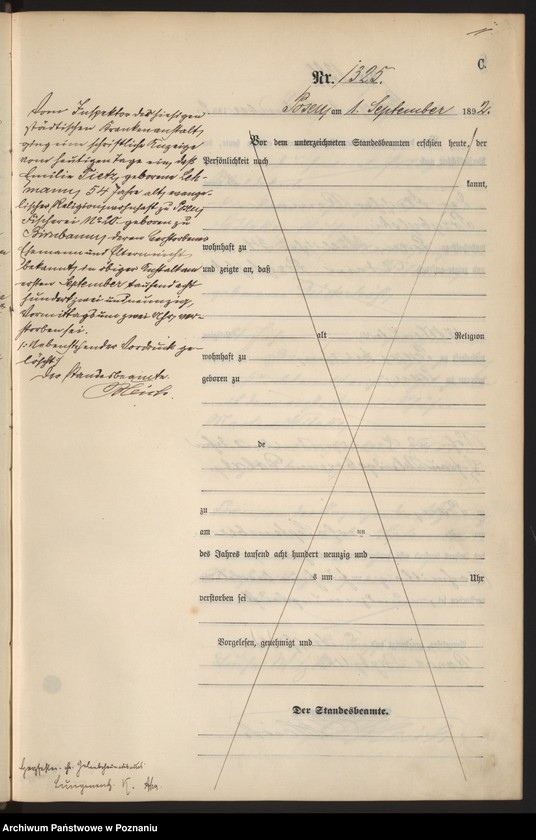 C.
Nr. 1325.
Posen am 1. September 1892.
Vom Inspektor des hiesigen
städtischen Krankenanstalt
ging eine schriftliche Anzeige
vom heutigen Tage ein, daß
Emilie Tietz, geborene Leh-
mann, 54 Jahre alt, evange-
lischer Religion, wohnhaft zu Posen,
Fischerei No 20. geboren zu
Birnbaum, deren verstorbener
Ehemann und Eltern nicht
bekannt, in obiger Anstalt am
ersten September tausend acht
hundert zwei und neunzig,
Vormittags um zwei Uhr, ver-
storben sei.
Nebenstehender Vordruck ge-
löscht.
Der Standesbeamte.
Vor dem unterzeichneten Standesbeamten erschien heute, der
Persönlichkeit nach
kannt,
wohnhaft zu
und zeigte an, daß
alt Religion
wohnhaft zu
geboren zu
de
zu
am ten
des Jahres tausend acht hundert neunzig und
s um Uhr
verstorben sei
Vorgelesen, genehmigt und
Der Standesbeamte.
Archiwum Państwowe w Poznaniu